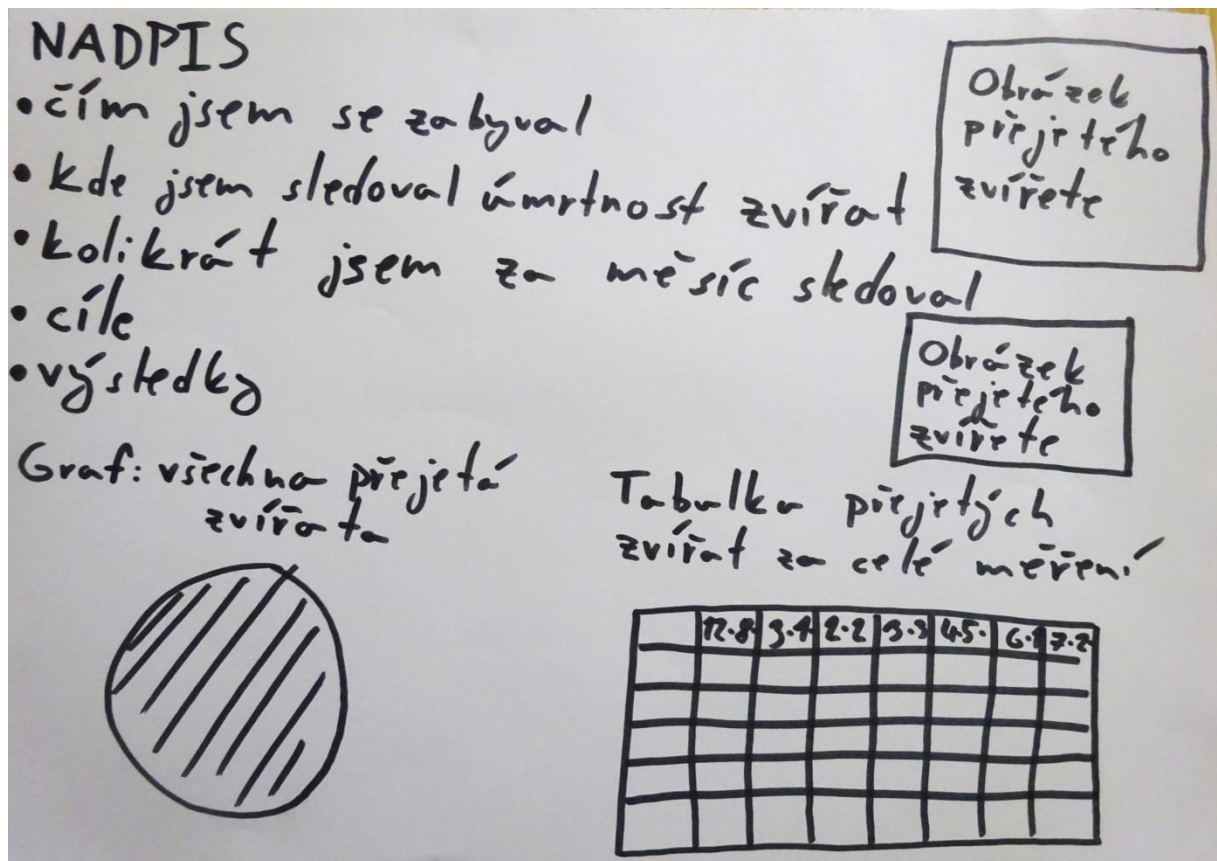 NADPIS
• čím jsem se zabýval
• kde jsem sledoval úmrtnost zvířat
• kolikrát jsem za měsíc sledoval
• cíle
• výsledky
Obrázek
přejetého
zvířete
Obrázek
přejetého
zvířete
Graf: všechna přejetá
zvířata
Tabulka přejetých
zvířat za celé měření
12.8 3.4 2.2 3.3 4.5. 6.1 7.2